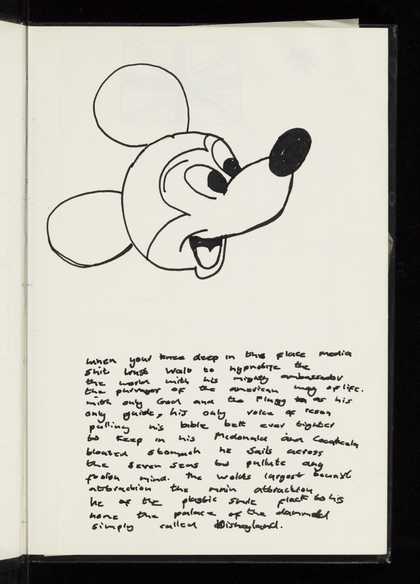 when your knee deep in this place media
shit trust Walt to hypnotize the
the world with his mighty ambassador
the purveyor of the american way of life.
with only God and the Flagg as his
only guide, his only voice of reson
pulling his bible belt ever tighter
to keep in his Mcdonald and Cocacola
bloated stomach he sails across
the seven seas to pullute any
foolish mind. the worlds largest tourist
attraction the main attraction
he of the plastic smile back to his
home the palace of the dammed
simply called Disneyland.